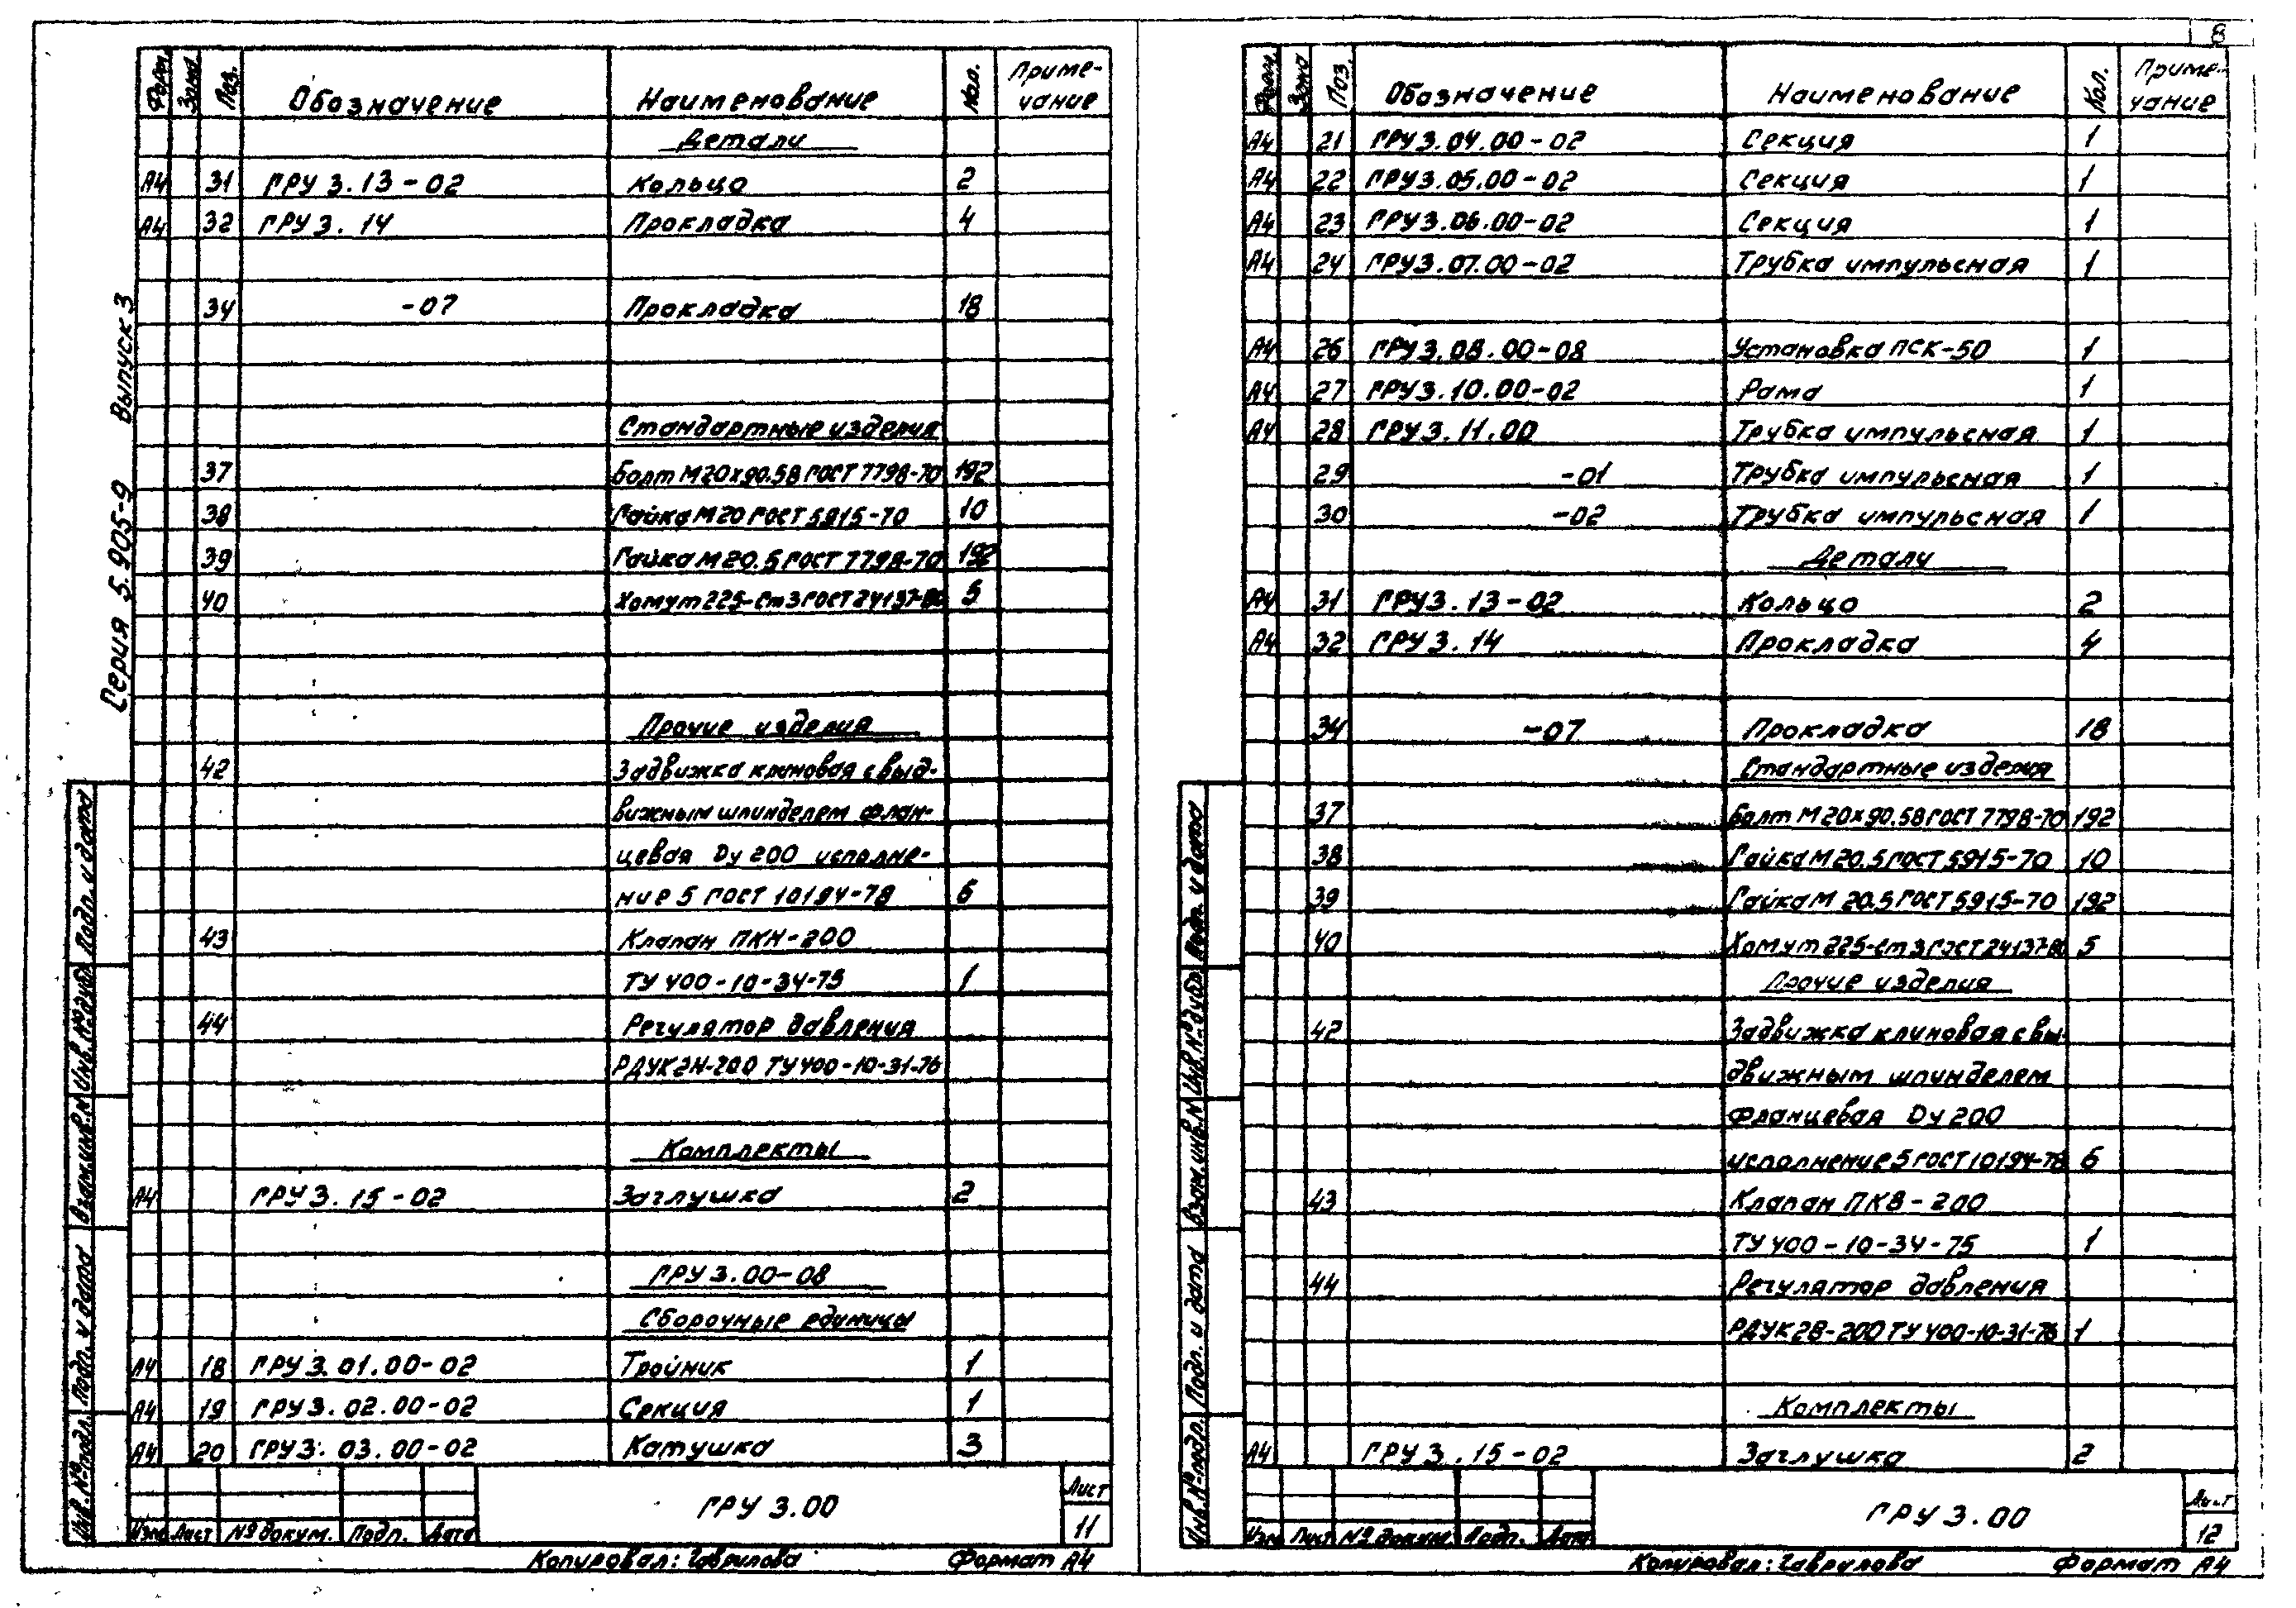 8
Серия 5.905-9 Выпуск 3
Форм. Зона Поз. Обозначение Наименование Кол. Приме-
чание
Детали
А4 31 ГРУ 3.13-02 Кольцо 2
А4 32 ГРУ 3.14 Прокладка 4
34 -07 Прокладка 18
Стандартные изделия
37 Болт М20х90.58 ГОСТ 7798-70 192
38 Гайка М20 ГОСТ 5915-70 10
39 Гайка М20.5 ГОСТ 7798-70 192
40 Хомут 225-Ст3 ГОСТ 24137-80 5
Прочие изделия
42 Задвижка клиновая с выд-
вижным шпинделем флан-
цевая Dу 200 исполне-
ние 5 ГОСТ 10194-78 6
43 Клапан ПКН-200
ТУ 400-10-34-75 1
44 Регулятор давления
РДУК2Н-200 ТУ 400-10-31-76
Комплекты
А4 ГРУ 3.15-02 Заглушка 2
ГРУ 3.00-08
Сборочные единицы
А4 18 ГРУ 3.01.00-02 Тройник 1
А4 19 ГРУ 3.02.00-02 Секция 1
А4 20 ГРУ 3.03.00-02 Катушка 3
Инв.№подл. Подп. и дата Взам.инв.№ Инв.№дубл. Подп. и дата
Изм Лист №докум. Подп. Дата
ГРУ 3.00
Лист
11
Копировал: Гаврилова Формат А4
Форм. Зона Поз. Обозначение Наименование Кол. Приме-
чание
А4 21 ГРУ 3.04.00-02 Секция 1
А4 22 ГРУ 3.05.00-02 Секция 1
А4 23 ГРУ 3.06.00-02 Секция 1
А4 24 ГРУ 3.07.00-02 Трубка импульсная 1
А4 26 ГРУ 3.08.00-08 Установка ПСК-50 1
А4 27 ГРУ 3.10.00-02 Рама 1
А4 28 ГРУ 3.11.00 Трубка импульсная 1
29 -01 Трубка импульсная 1
30 -02 Трубка импульсная 1
Детали
А4 31 ГРУ 3.13-02 Кольцо 2
А4 32 ГРУ 3.14 Прокладка 4
34 -07 Прокладка 18
Стандартные изделия
37 Болт М20х90.58 ГОСТ 7798-70 192
38 Гайка М20.5 ГОСТ 5915-70 10
39 Гайка М20.5 ГОСТ 5915-70 192
40 Хомут 225-Ст3 ГОСТ 24137-80 5
Прочие изделия
42 Задвижка клиновая с вы-
движным шпинделем
фланцевая Dу 200
исполнение 5 ГОСТ 10194-78 6
43 Клапан ПКВ-200
ТУ 400-10-34-75 1
44 Регулятор давления
РДУК2В-200 ТУ 400-10-31-76 1
Комплекты
А4 ГРУ 3.15-02 Заглушка 2
Инв.№подл. Подп. и дата Взам.инв.№ Инв.№дубл. Подп. и дата
Изм Лист №докум. Подп. Дата
ГРУ 3.00
Лист
12
Копировал: Гаврилова Формат А4